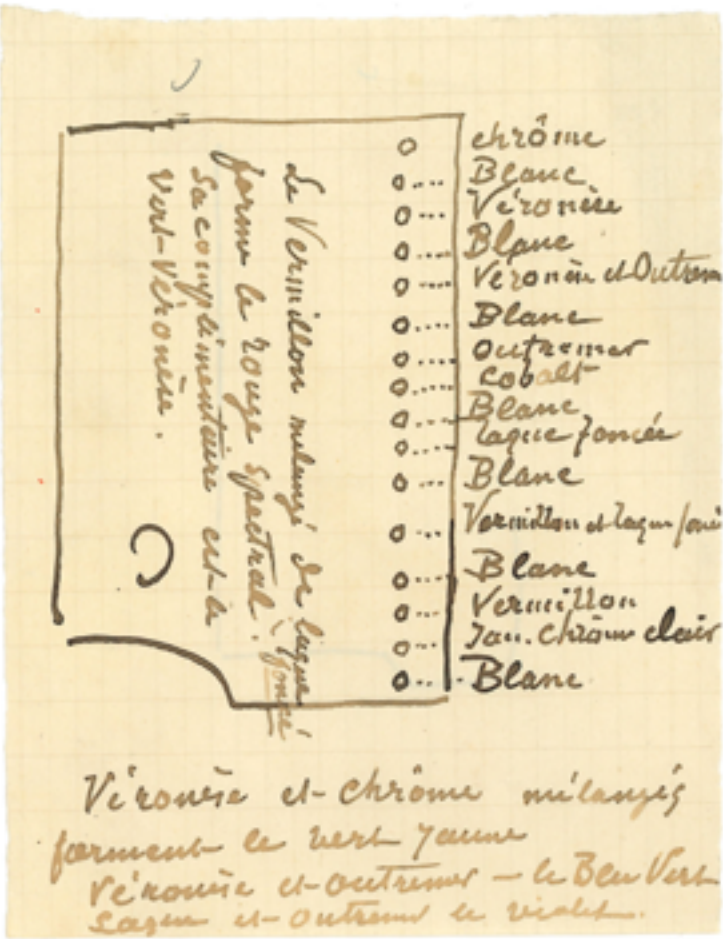 chrôme
Blanc
Véronèse
Blanc
Véronèse et Outrem
Blanc
Outremer
Cobalt
Blanc
laque foncée
Blanc
Vermillon et laque foncé
Blanc
Vermillon
Jau. Chrôme clair
Blanc
Le Vermillon mélangé de laque
foncé
forme le rouge spectral.
Sa complimentaire est le
Vert-Véronèse.
Véronèse et chrôme mélangés
forment le vert jaune
Véronèse et outremer - le Bleu Vert
Laque et outremer le violet.